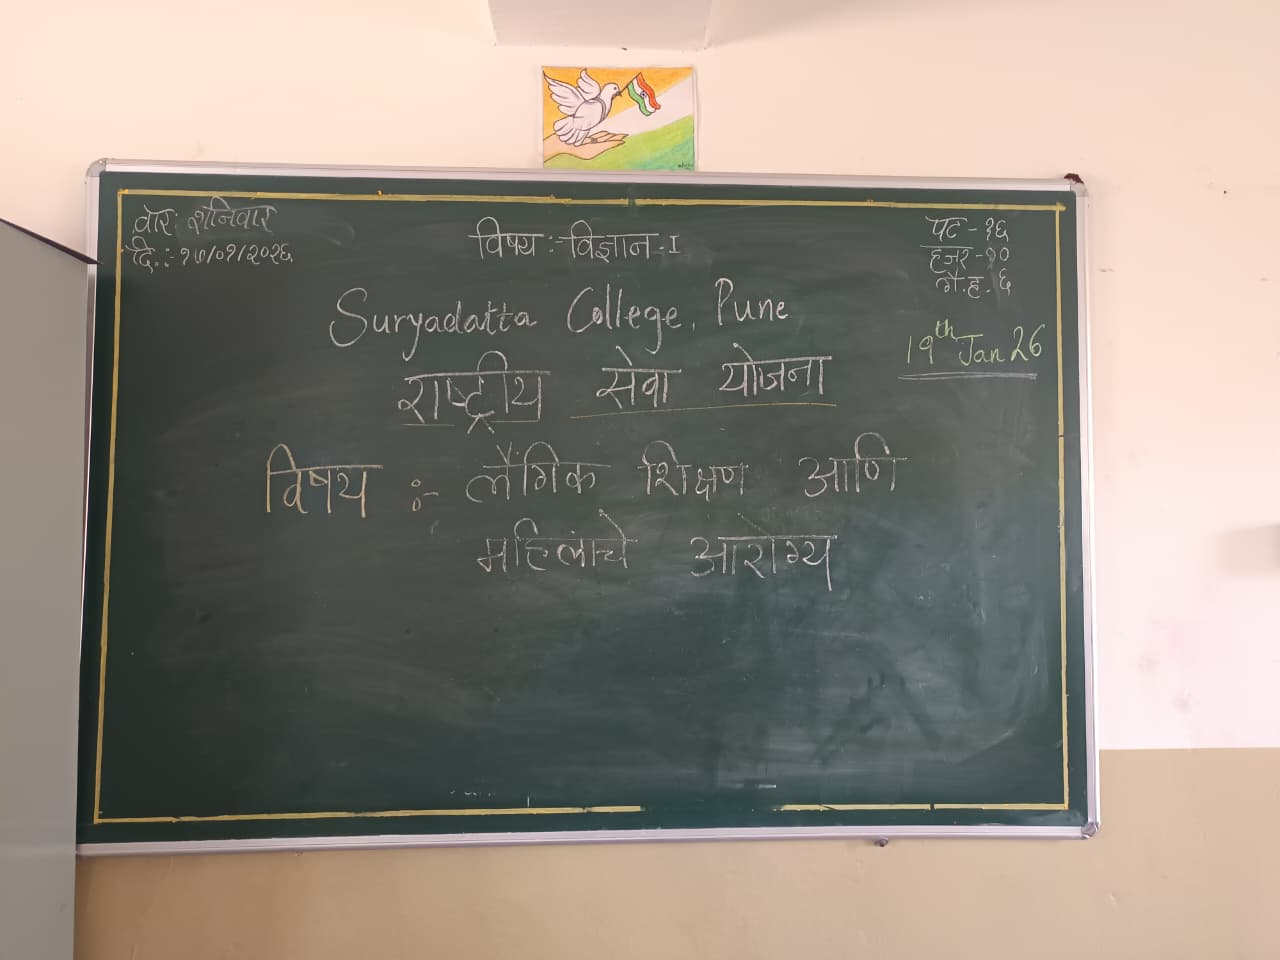 वार: शनिवार
दि.:- १७/०१/२०२६
विषय:- विज्ञान - I
पट - १६
हजर - १०
गै.ह. ६
Suryadatta College, Pune
19th Jan 26
राष्ट्रीय सेवा योजना
विषय :- लैंगिक शिक्षण आणि
महिलांचे आरोग्य